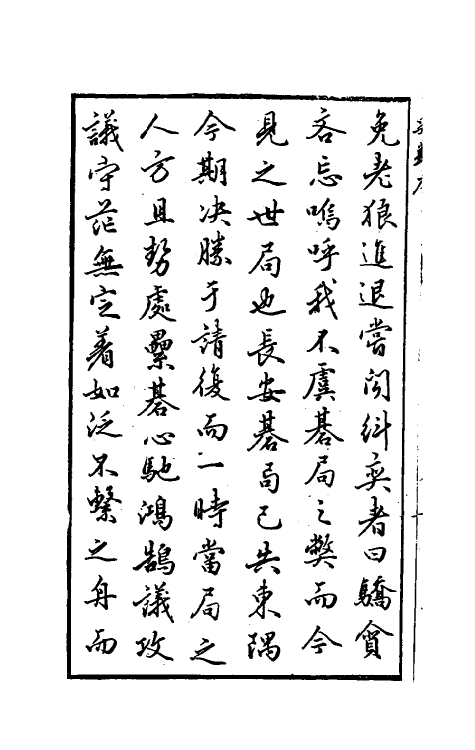 免老狼進退嘗聞糾奕者曰驕貪
吝忘嗚呼我不虞碁局之弊而今
見之世局也長安碁局已失東隅
今期决勝于請復而一時當局之
人方且勢處纍碁心馳鴻鵠議攻
議守茫無定着如泛不繫之舟而